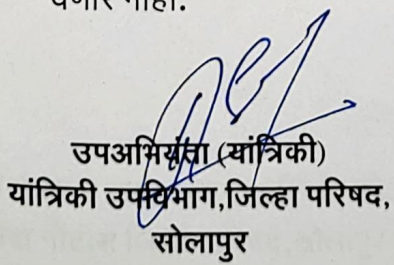 नाही.
उपअभियंता (यांत्रिकी)
यांत्रिकी उपविभाग,जिल्हा परिषद,
सोलापुर